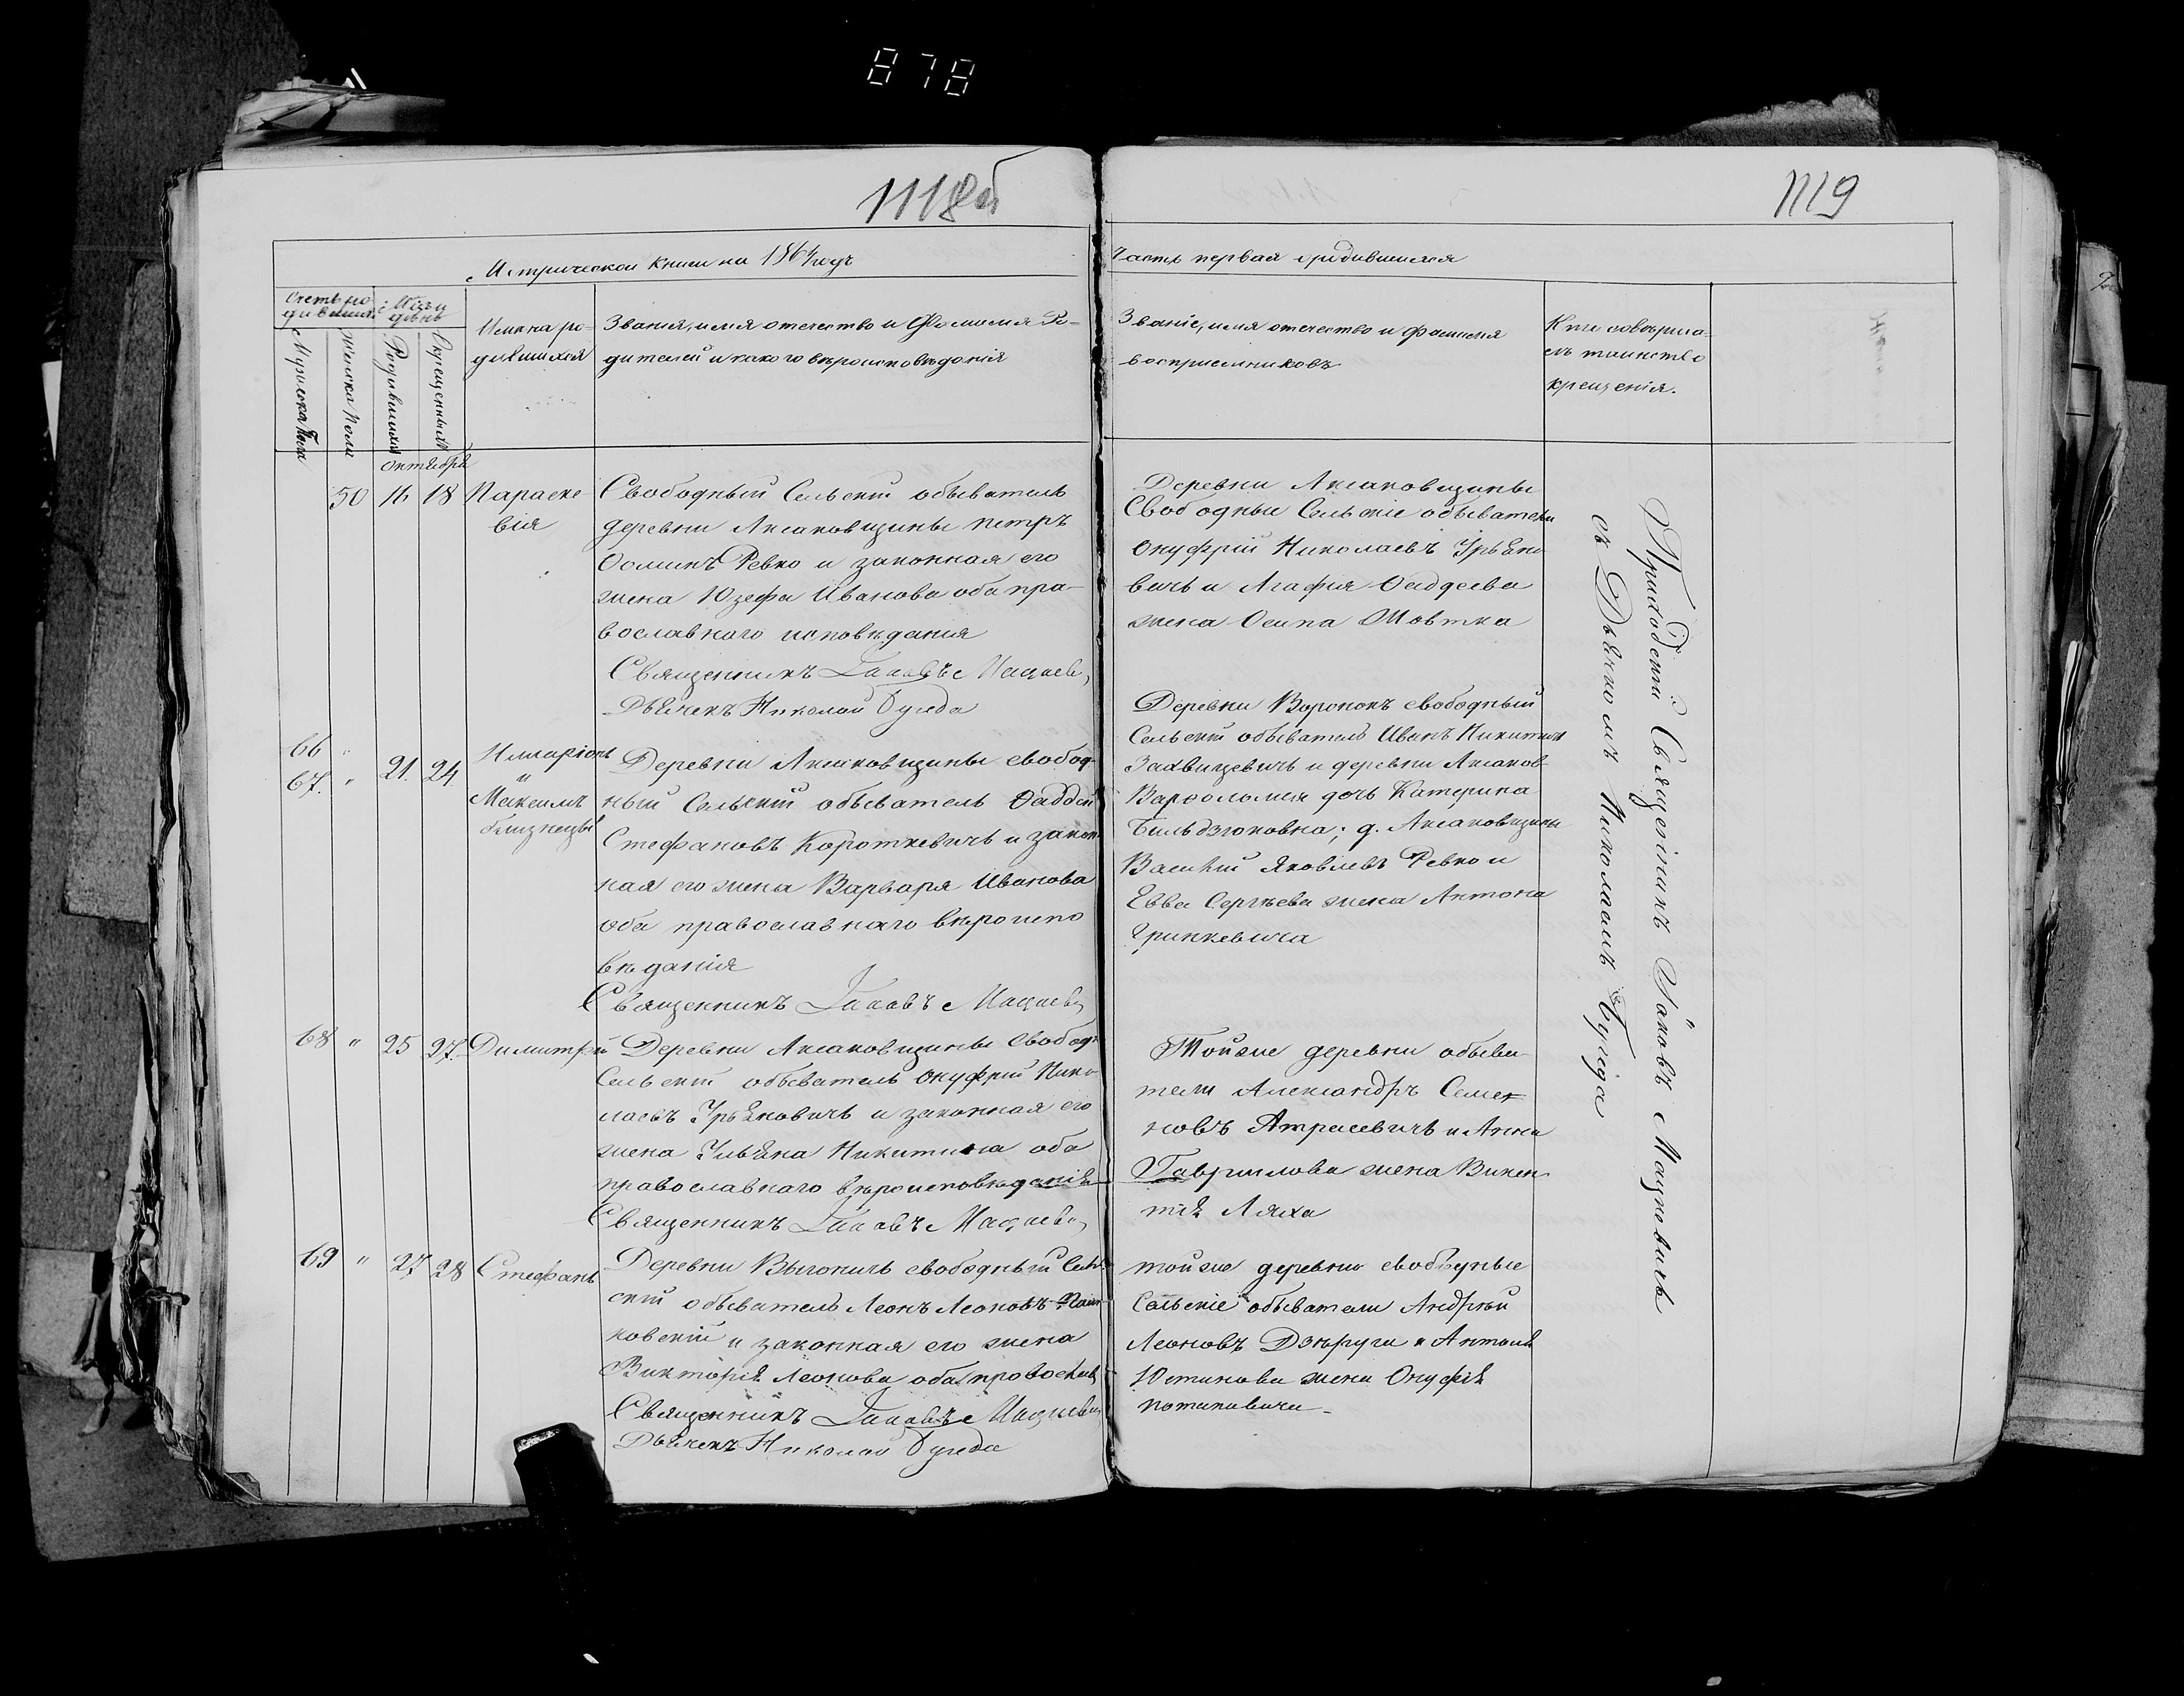 878
1118об
1119
Метрической книги на 1864 годъ
Часть первая о родившихся
Счетъ ро-
дивших.
Мѣсяцъ и
день
Мужеска пола
Женска пола
Родившихся
Крещенныхъ
Имена ро-
дившихся
Званія, имя отечество и фамилія Ро-
дителей и какого вѣроисповѣданія
Званіе, имя отечество и фамилія
воспріемниковъ
Кто совершa-
лъ таинство
крещенія.
октября
50 16 18 Параске
вія
Свободный Сельскій обыватель
деревни Аксаковщины Петръ
Ѳоминъ Ревко и законная его
жена Юзефа Иванова оба пра-
вославнаго исповѣданія
Священникъ Іаковъ Мацкевич
Дьячекъ Николай Бугеда
Деревни Аксаковщины
Свободные Сельскіе обыватели
Онуфрій Николаевъ Урьяно
вичъ и Агафія Ѳаддеева
жена Осипа Жовтка
66 "
67. " 21. 24
Илларіонъ
и
Максимъ
близнецы
Деревни Аксаковщины свобод-
ный Сельскій обыватель Ѳаддей
Стефановъ Короткевичъ и закон
ная его жена Варвара Иванова
оба православнаго вѣроиспо
вѣданія
Священникъ Іаковъ Мацкевич
Деревни Воронокъ свободный
Сельскій обыватель Иванъ Никитинъ
Захвицевичъ и деревни Аксаков
Варѳоломея дочь Катерина
Бильдзюковна; д. Аксаковщины
Василій Яковлевъ Ревко и
Евва Сергѣева жена Антона
Гринкевича
68 " 25 27. Димитрій
Деревни Аксаковщины Свобод.
Сельскій обыватель Онуфрій Нико
лаевъ Урьяновичъ и законная его
жена Ульяна Никитина оба
православнаго вѣроисповѣданія
Священникъ Іаковъ Мацкевич
Тойже деревни обыва
тели Александръ Семе
новъ Атрасевичъ и Анна
Гаврилова жена Викен
тія Ляха
69 " 27 28 Стефанъ
Деревни Выгоничъ свободный Сель
скій обыватель Леонъ Леоновъ
ковскій и законная его жена
Викторія Леонова оба православ
Священникъ Іаковъ Мацкевич
Дьячекъ Николай Бугеда
тойже деревни свободные
Сельскіе обыватели Андрей
Леоновъ и Антоля
Юстинова жена Онуфрія
Потаповича
Приходскій Священникъ Іаковъ Мацкевичъ
съ Дьячкомъ Николаемъ Бугеда